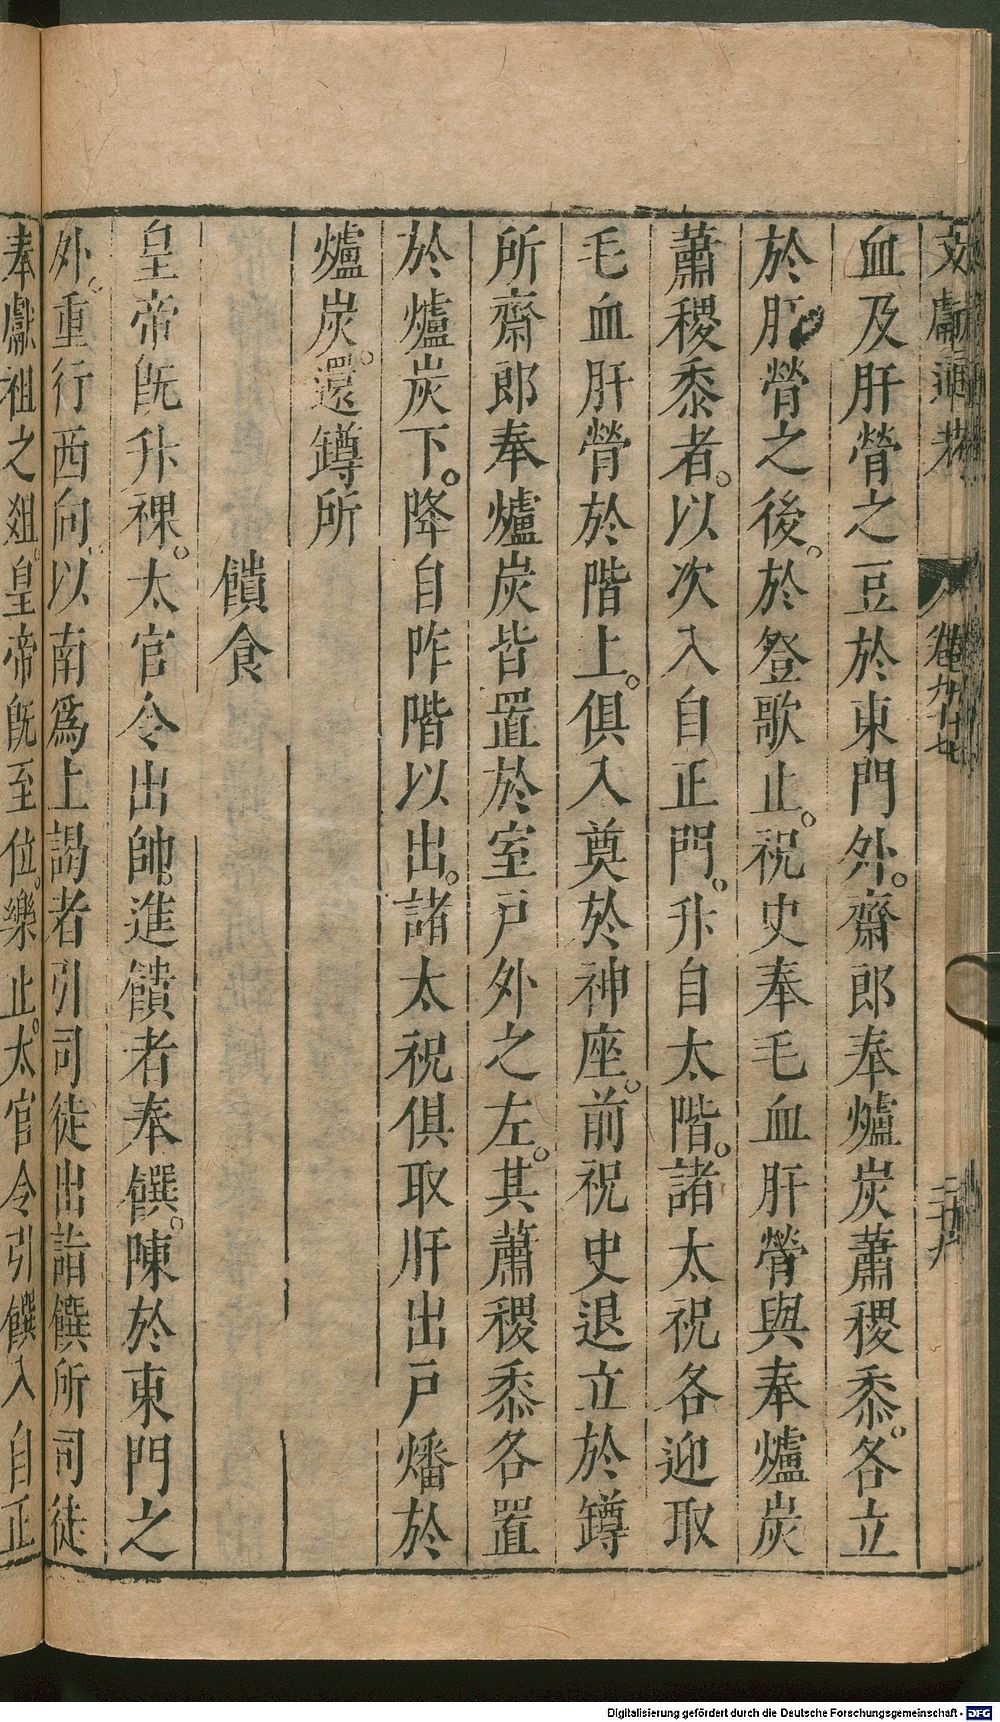 文獻通考 卷九十七 二十九
血及肝膋之豆於東門外。齋郎奉爐炭蕭稷黍。各立
於肝膋之後。於登歌止。祝史奉毛血肝膋與奉爐炭
蕭稷黍者。以次入自正門。升自太階。諸太祝各迎取
毛血肝膋於階上。俱入奠於神座。前祝史退立於罇
所齋郎奉爐炭皆置於室戶外之左。其蕭稷黍各置
於爐炭下。降自昨階以出。諸太祝俱取肝出戶燔於
爐炭。還罇所
饋食
皇帝旣升祼。太官令出帥。進饋者奉饌。陳於東門之
外。重行西向。以南爲上謁者引司徒出詣饌所司徒
奉獻祖之俎。皇帝旣至位。樂止。太官令引饌入自正
Digitalisierung gefördert durch die Deutsche Forschungsgemeinschaft - DFG